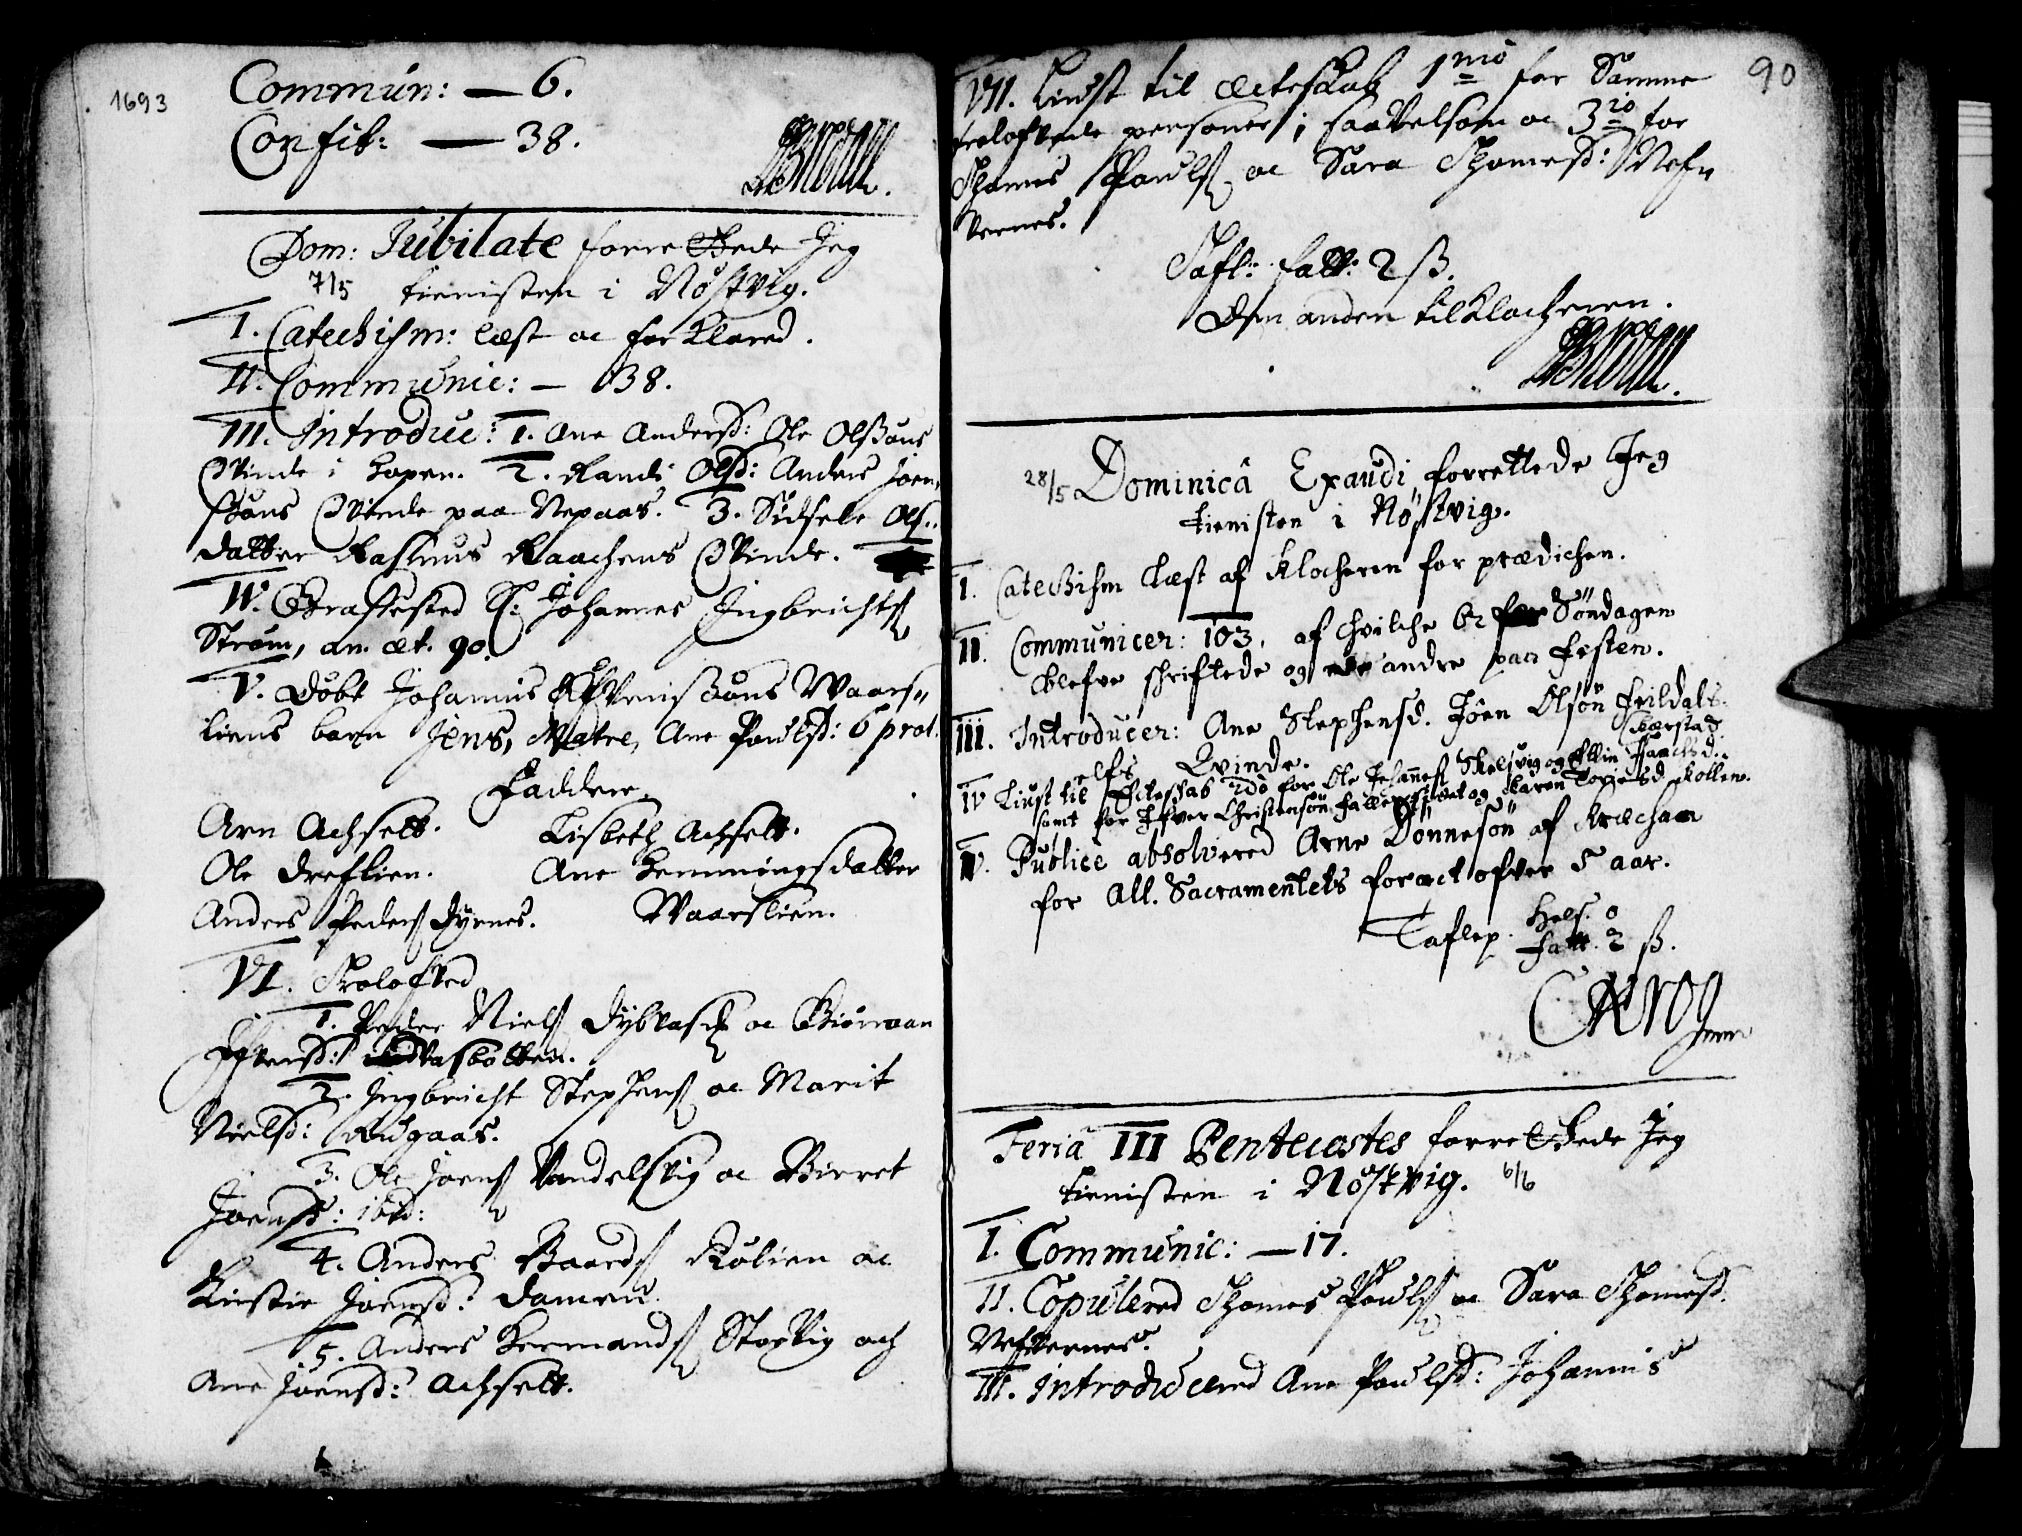 1693
Commun: — 6.
Confit: — 38.
Dom: Jubilate forrettede Jeg
7/5 tienisten i Nøstvig.
I. Catechism: læst oc forklared.
II. Communic: — 38.
III. Introduc: 1. Ane Andersd: Ole Olssøns
Qvinde i hopen. 2. Randi Olsd: Anders Joen
søns Qvinde paa Nepaas. 3. Sidsele Ols-
datter Rasmus Raachens Qvinde.
IV. Graffested S: Johannes Ingbrichts
Strøm, an. æt. 90.
V. Døbt Johannis Efvenssøns Waars-
liens barn Jens, Matre, Ane Paulsd: 6 prot.
Faddere.
Arn Achselt. Lisbeth Achselt.
Ole Dreflien. Ane Hemmingsdatter
Anders Peders Dyrnes. Waarslien.
VI. Trolofved
1. Peder Niels Dybvasch oc Giøroan
Efvensd: Vasbotten.
2. Ingbricht Stephens oc Marit
Nielsd: Rugaas.
3. Ole Joens Vandelsvig oc Birret
Joensd: ibid:
4. Anders Baards Rølien oc
Kirstie Joensd: Damen
5. Anders Hermands Storvig och
Ane Joensd: Achselt.
90
VII. Liust til ægteskab 1mo for Samme
trolofvede personer; saavelsom oc 3tio for
Thomes Pouls oc Sara Thomesd: Nefst
vernes.
Tafl: fatt: 2 ß.
Den anden til Klocheren.
28/5 Dominicâ Exaudi forrettede Jeg
tienisten i Nøstvig.
I. Catechism læst af Klocheren for prædichen.
II. Communicer: 103, af hvilche 62 Søndagen
blefve schriftede og andre paa Festen.
III. Introducer: Ane Stephensd. Jøen Olsøn Feildals-
elfs Qvinde.
IV Liust til Ectescab 2do for Ole Johannes Skelsvig og Ellin Isaachsd. Skarstad
samt for Ifver Christensøn og Karen Torjersd Kollen.
V. Publice absolvered Arne Dönnesøn af
for All. Sacramentets foract ofver 5 aar.
Taflep. Hels. 0
Fatt. 2 ß.
Feria III Pentecostes forrettede Jeg
tienisten i Nøstvig. 6/6
I. Communic: — 17.
II. Copulered Thomes Pouls oc Sara Thomesd.
Nefvernes.
III. Introducered Ane Paulsd: Johannis